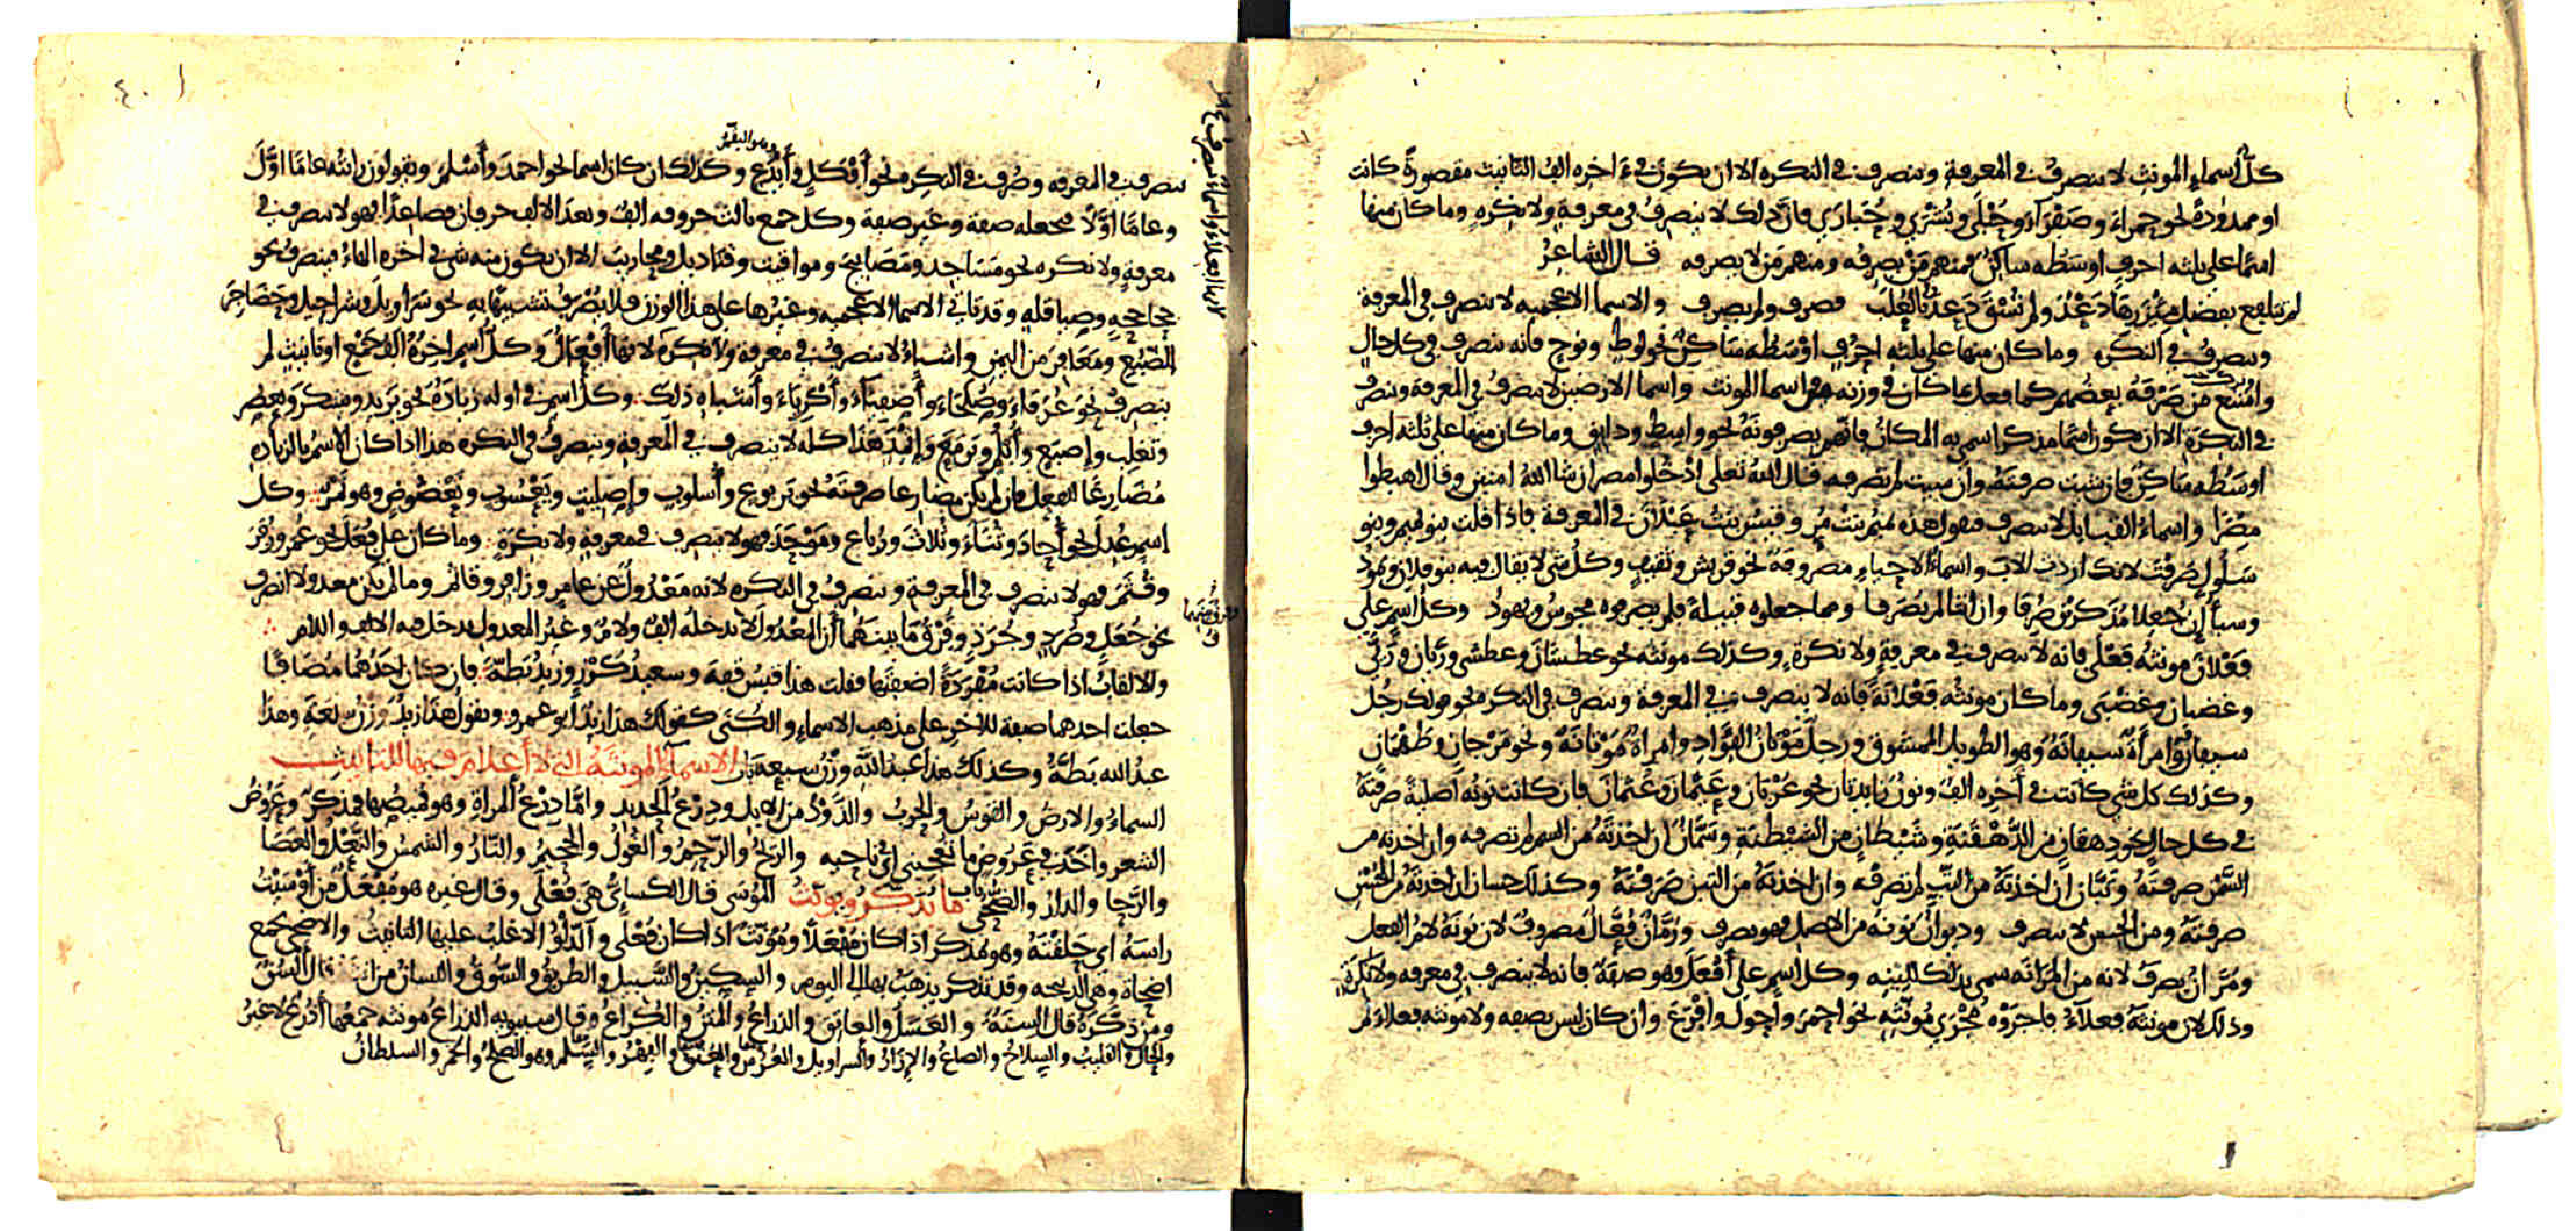 كلّ اسماء المونث لا ينصرف في المعرفة وينصرف في النكره الا ان يكون في اخره الف التانيث مقصورةً كانت
او ممدودةً نحو حمراء وصفراء وحُبْلَى وبُشْرَي وحُبَارَي فان ذلك لا ينصرف في معرفة ولا نكره وما كان منها
اسمًا على ثلثه احرف اوسطه ساكن فمنهم من يصرفه ومنهم من لا يصرفه قال الشاعرُ
لم تتلفع بفضل مئزرها دَعْدٌ ولم تُسْقَ دَعدُ في العُلَب فصرف ولم يصرف والاسما الاعجميه لا تنصرف في المعرفة
وتنصرف في النكره وما كان منها على ثلثه احرف اوسطه ساكن نحو لوط ونوح فانه ينصرف في كل حالٍ
وامتنع من صَرْفه بعضهم كما فعل بما كان في وزنه من اسما المونث واسما الارضين لا تنصرف في المعرفة وتنصرف
في النكرة الا ان يكون اسما مذكرا سمي به المكان فانهم يصرفونه نحو واسط ودابق وما كان منها على ثلثه احرف
اوسطه ساكن فان شيت صرفته وان شيت لم تصرفه قال الله تعلى ادخلوا مصر ان شا الله امنين وقال اهبطوا
مِصْرًا واسماءُ القبايل لا تنصرف تقول هذه تميم بنتُ مُر وقيسُ بنتُ عَيْلان في المعرفة فاذا قلت بنو تميم وبنو
سَلُولٍ صرفت لانك اردت الاب واسماءُ الاحياءِ مصروفة نحو قريش وثقيف وكل شي لا يقال فيه بنو فلان وثمود
وسبأ إن جُعلا مُذَكرين صُرفا وان انّثا لم يُصرفا ومما جعلوه قبيلة فلم يصرفوه مجوسُ ويهودُ وكل اسم على
فَعْلان مونثه فَعْلَى فانه لا ينصرف في معرفةٍ ولا نكرة وكذلك مونثه نحو عطشان وعطشى وريّان وريّي
وغضبان وغضبى وما كان مونثه فَعْلانَةً فانه لا ينصرف في المعرفة وينصرف في النكره نحو قولك رجُل
سيفانٌ وامرأةٌ سيفانةٌ وهو الطويل الممشوق ورجل مَوْتان الفؤاد وامراة مَوْتانةٌ ونحو مَرْجان وطَهْمان
وكذلك كل شي كانت في آخره الف ونون زايدتان نحو عُرْيان وعِتبان وعُثمان فان كانت نونه اصليةً صرفته
في كل حال نحو دهقان من الدَّهْقَنَة وشَيْطان من الشيطنة وسَمّان ان اخذتَهُ من السم لم تصرفه وان اخذته من
السَّمْن صرفته وتَبّان ان اخذتَهُ من التبّ لم تصرفه وان اخذته من التبن صَرَفْته وكذلك حسان ان اخذتَهُ من الحُسْن
صرفته ومن الحس لا ينصرف وديوان نونه من الاصل فهو يصرف ورُمّان فُعّال مصروف لان نونهُ لام الفعل
ومُرّان يصرف لانه من المرانه سمى بذلك للينه وكل اسم على أَفْعَل وهو صفة فانه لا ينصرف في معرفه ولا نكرة
وذلك لان مونثهُ فعلاءُ فاجرَوْهُ مُجْرَي مُونثِه نحو احمَرَ واحول واقرع وان كان ليس بصفه ولا مونثه فعلاءُ لم
ينصرف في المعرفه وصُرف في النكره نحو أَفْكَل وأَيْدع وكذلك ان كان اسما نحو احمد وأَسْلَم ويقولون رايته عامًا اوّلَ
وعامًا اوّلًا فيجعله صفة وغير صفة وكل جمع ثالث حروفه الف وبعد الالف حرفان فصاعدًا فهو لا ينصرف في
معرفةٍ ولا نكره نحو مَسَاجد ومَصَابيح ومواقيت وقناديل ومحاريب الا ان يكون منه شي في اخره الهاء فينصرف نحو
جحاجحةٍ وصياقلهٍ وقد تاتي الاسما الاعجميه وغيرها على هذا الوزن فلا يُصْرف تشبيهًا به نحو سَراويل وشراحيل وحَضَاجِر
الضَّبُع ومَعَافِر من اليمن واشياءُ لا ينصرف في معرفة ولا نكره لانها أَفْعَال وكل اسم اخره الف جمع او تانيث لم
ينصرف نحو عُرَفَاءَ وصُلَحَاءَ وأَصفِيآء وأَكْرِيَاءَ وأَشباه ذلك وكل اسم في اوله زيادة نحو يَزيد ويشكر ويعصر
وتغلب وإصبَع وأُبْلُم ويَرمَع وإثمِد هذا كله لا ينصرف في المعرفة وينصرف في النكره هذا اذا كان الاسمُ بالزياده
مُضَارعًا للفعل فان لم يكن مضارعا صرفته نحو يربوع وأُسلوب وإصليت ويَعْسُوب وتَعْضُوض وهو تمر وكل
اسم عُدل نحو أُحادَ وثُنَاءَ وثُلاثَ ورُباع ومَوْحَدَ فهو لا ينصرف في معرفةٍ ولا نكرةٍ وما كان على فُعَلَ نحو عُمَر وزُفَر
وقُثَمَ فهو لا ينصرف في المعرفة وينصرف في النكره لانه مَعْدُولٌ عن عامِرٍ وزافِر وقاثم وما لم يكن معدولا انصرف
نحو جُعَل وصُرَد وجُرَذ وفَرْقُ مَا بينهما أن المعْدُولَ لا تدخله الف ولام وغير المعدول تدخل فيه الالف واللام
والالقابُ اذا كانت مُفْرَدَةً اضفتها فقلت هذا قيسُ قفةَ وسعيدُ كُرْزٍ وزيدُ بَطّةَ فان كان احَدُهُما مُضَافًا
جعلت احدهما صفة للاخر على مذهب الاسماء والكُنَى كقولك هذا زيدٌ ابو عمرو وتقول هذا زيدٌ وزنُ سبعَةٍ وهذا
عبدُ الله بَطّةُ وكذلك هذا عبدُ الله وزنُ سبعه باب الاسماءُ المونثةُ التي لا أعلام فيها للتانيث
السماءُ والارضُ والقوسُ والحربُ والذَّوْدُ من الابل ودِرْعُ الحديد وامّا دِرْعُ المراةِ وهو قميصُها فمذكر وعَرُوض
الشعر واخذ في عَرُوضٍ ما تعجبني اي ناحيه والرّيحُ والرّحِمُ والغُولُ والجحيمُ والنّارُ والشمسُ والنَّعْلُ والعَصَا
والرَّحا والدارُ والضحى باب ما يُذكّر ويونث المُوسَى قال الكسائي هي فُعْلَى وقال غيره هو مُفْعَلٌ من أَوْسَيْتُ
راسَهُ اي حَلقْتَهُ وهو مذكر اذا كان مُفْعَلًا ومُونّث اذا كان فُعْلَى والدّلْوُ الاغلبُ عليها التانيثُ والاضحى جمع
اضحاة وهي الذبيحه وقد تذكر يذهب بها الى اليوم والسكين والسَّبيل والطريقُ والسُّوق واللسانُ من انث قال السُنٌ
ومن ذكّره قال السنةٌ والعَسَلُ والعاتق والذراعُ والمتنُ والكُراعُ وقال سيبويه الذراعُ مونثه جمعُها أَذْرُعٌ لا غيرُ
والحالُ والقليبُ والسِلاحُ والصاعُ والإزارُ والسراويل والعُرْسُ والعُنُق والفِهْرُ والسّلم وهو الصلحُ والخمر والسلطان